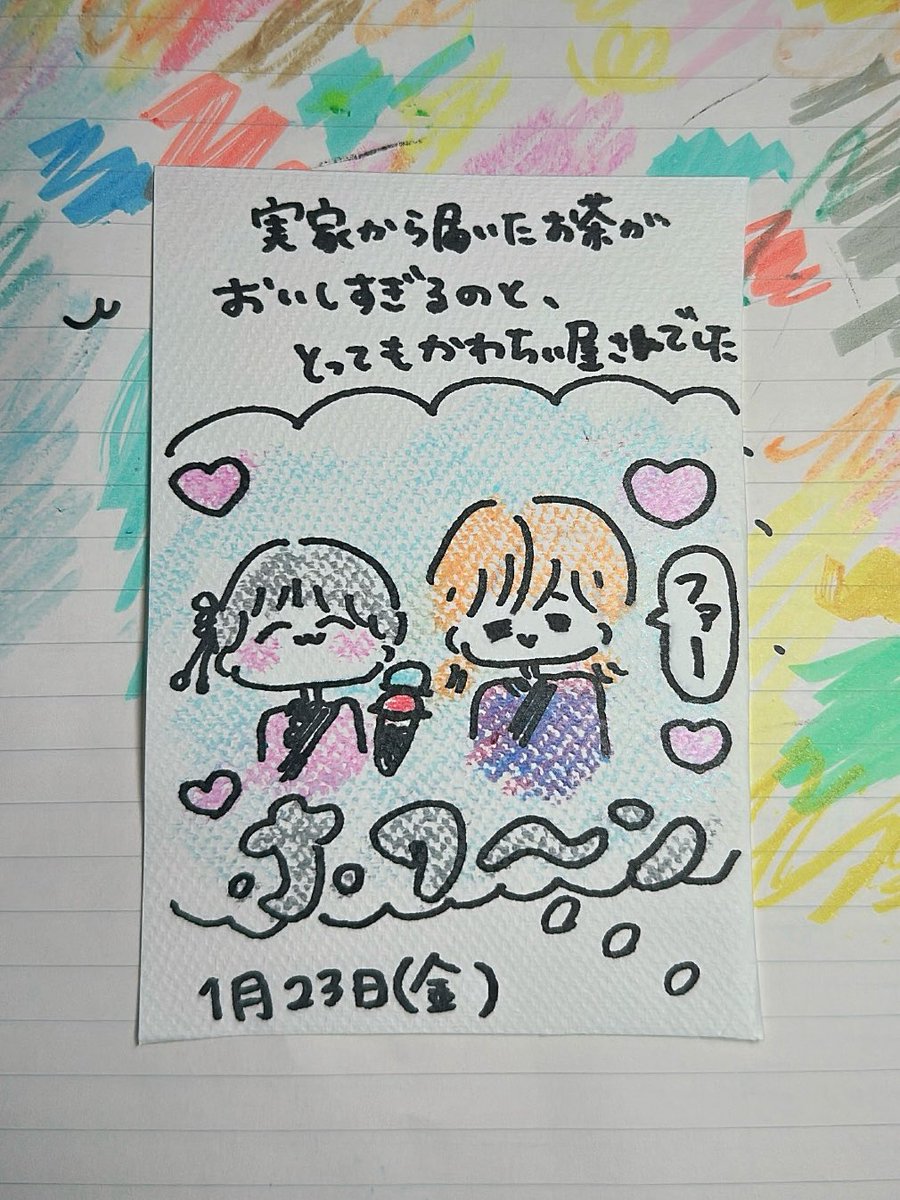 実家から届いたお茶が
おいしすぎるのと、
とってもかわちい屋さんでした
ファー
ホワ〜ン
1月23日(金)